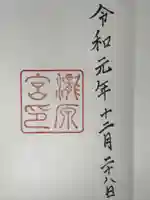 令和元年十二月二十八日
瀧原
宮印